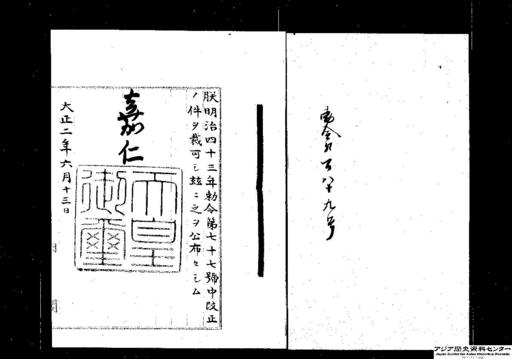 勅令第百八十九号
朕明治四十三年勅令第七十七號中改正
ノ件ヲ裁可シ茲ニ之ヲ公布セシム
嘉仁
天皇
御璽
大正二年六月十三日
内閣
アジア歴史資料センター
Japan Center for Asian Historical Records